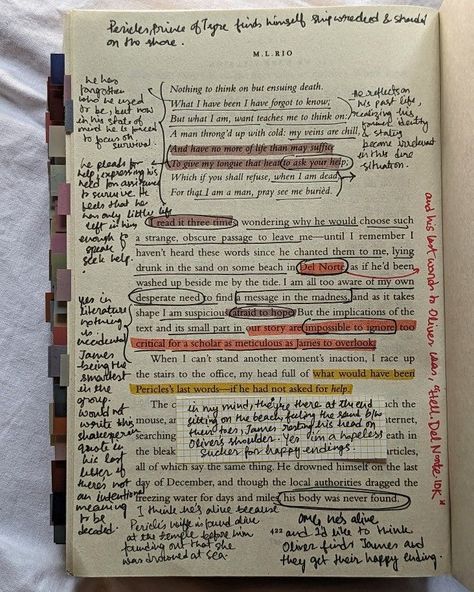 Pericles, Prince of Tyre finds himself shipwrecked & stranded
on the shore.
M. L. RIO
Nothing to think on but ensuing death.
What I have been I have forgot to know;
But what I am, want teaches me to think on:
A man throng'd up with cold: my veins are chill,
And have no more of life than may suffice
To give my tongue that heat to ask your help;
Which if you shall refuse, when I am dead,
For that I am a man, pray see me buried.
he has
forgotten
who he used
to be, but now
in his state of
mind he is forced
to focus on
survival.
he pleads for
help, expressing his
need for assistance
to survive. He
feels that he
has only little life
left in him
enough to
speak
seek help.
He reflects on
his past life,
realizing his
former identity
& status
become irrelevant
in this dire
situation.
I read it three times, wondering why he would choose such
a strange, obscure passage to leave me—until I remember I
haven't heard these words since he chanted them to me, lying
drunk in the sand on some beach in Del Norte, as if he'd been
washed up beside me by the tide. I am all too aware of my own
desperate need to find a message in the madness, and as it takes
shape I am suspicious, afraid to hope. But the implications of the
text and its small part in our story are impossible to ignore, too
critical for a scholar as meticulous as James to overlook.
When I can stand another moment's inaction, I race up
the stairs to the office, my head full of what would have been
Pericles's last words—if he had not asked for help.
and his last words to Oliver was, "Hell. Del Norte. 10K"
yes in
literature
nothing
is
incidental
James
being the
smartest
in the
group.
Would not
write this
shakespearian
quote in
his last
letter if
there's not
an intentional
meaning
to be
decoded.
The c
mouse, an
searching
the bleak
in my mind, they're there at the end
sitting on the beach feeling the sand b/w
their toes. James resting his head on
Oliver's shoulder. Yes i'm a hopeless
sucker for happy endings.
ich the
internet,
eath in
articles,
all of which say the same thing. He drowned himself on the last
day of December, and though the local authorities dragged the
freezing water for days and miles, his body was never found.
I think he's alive because
Pericles' wife is found alive
at the temple before him
founding out that she
was drowned at sea.
422
OMG, he's alive
and I'd like to think
Oliver finds James and
they get their happy ending.